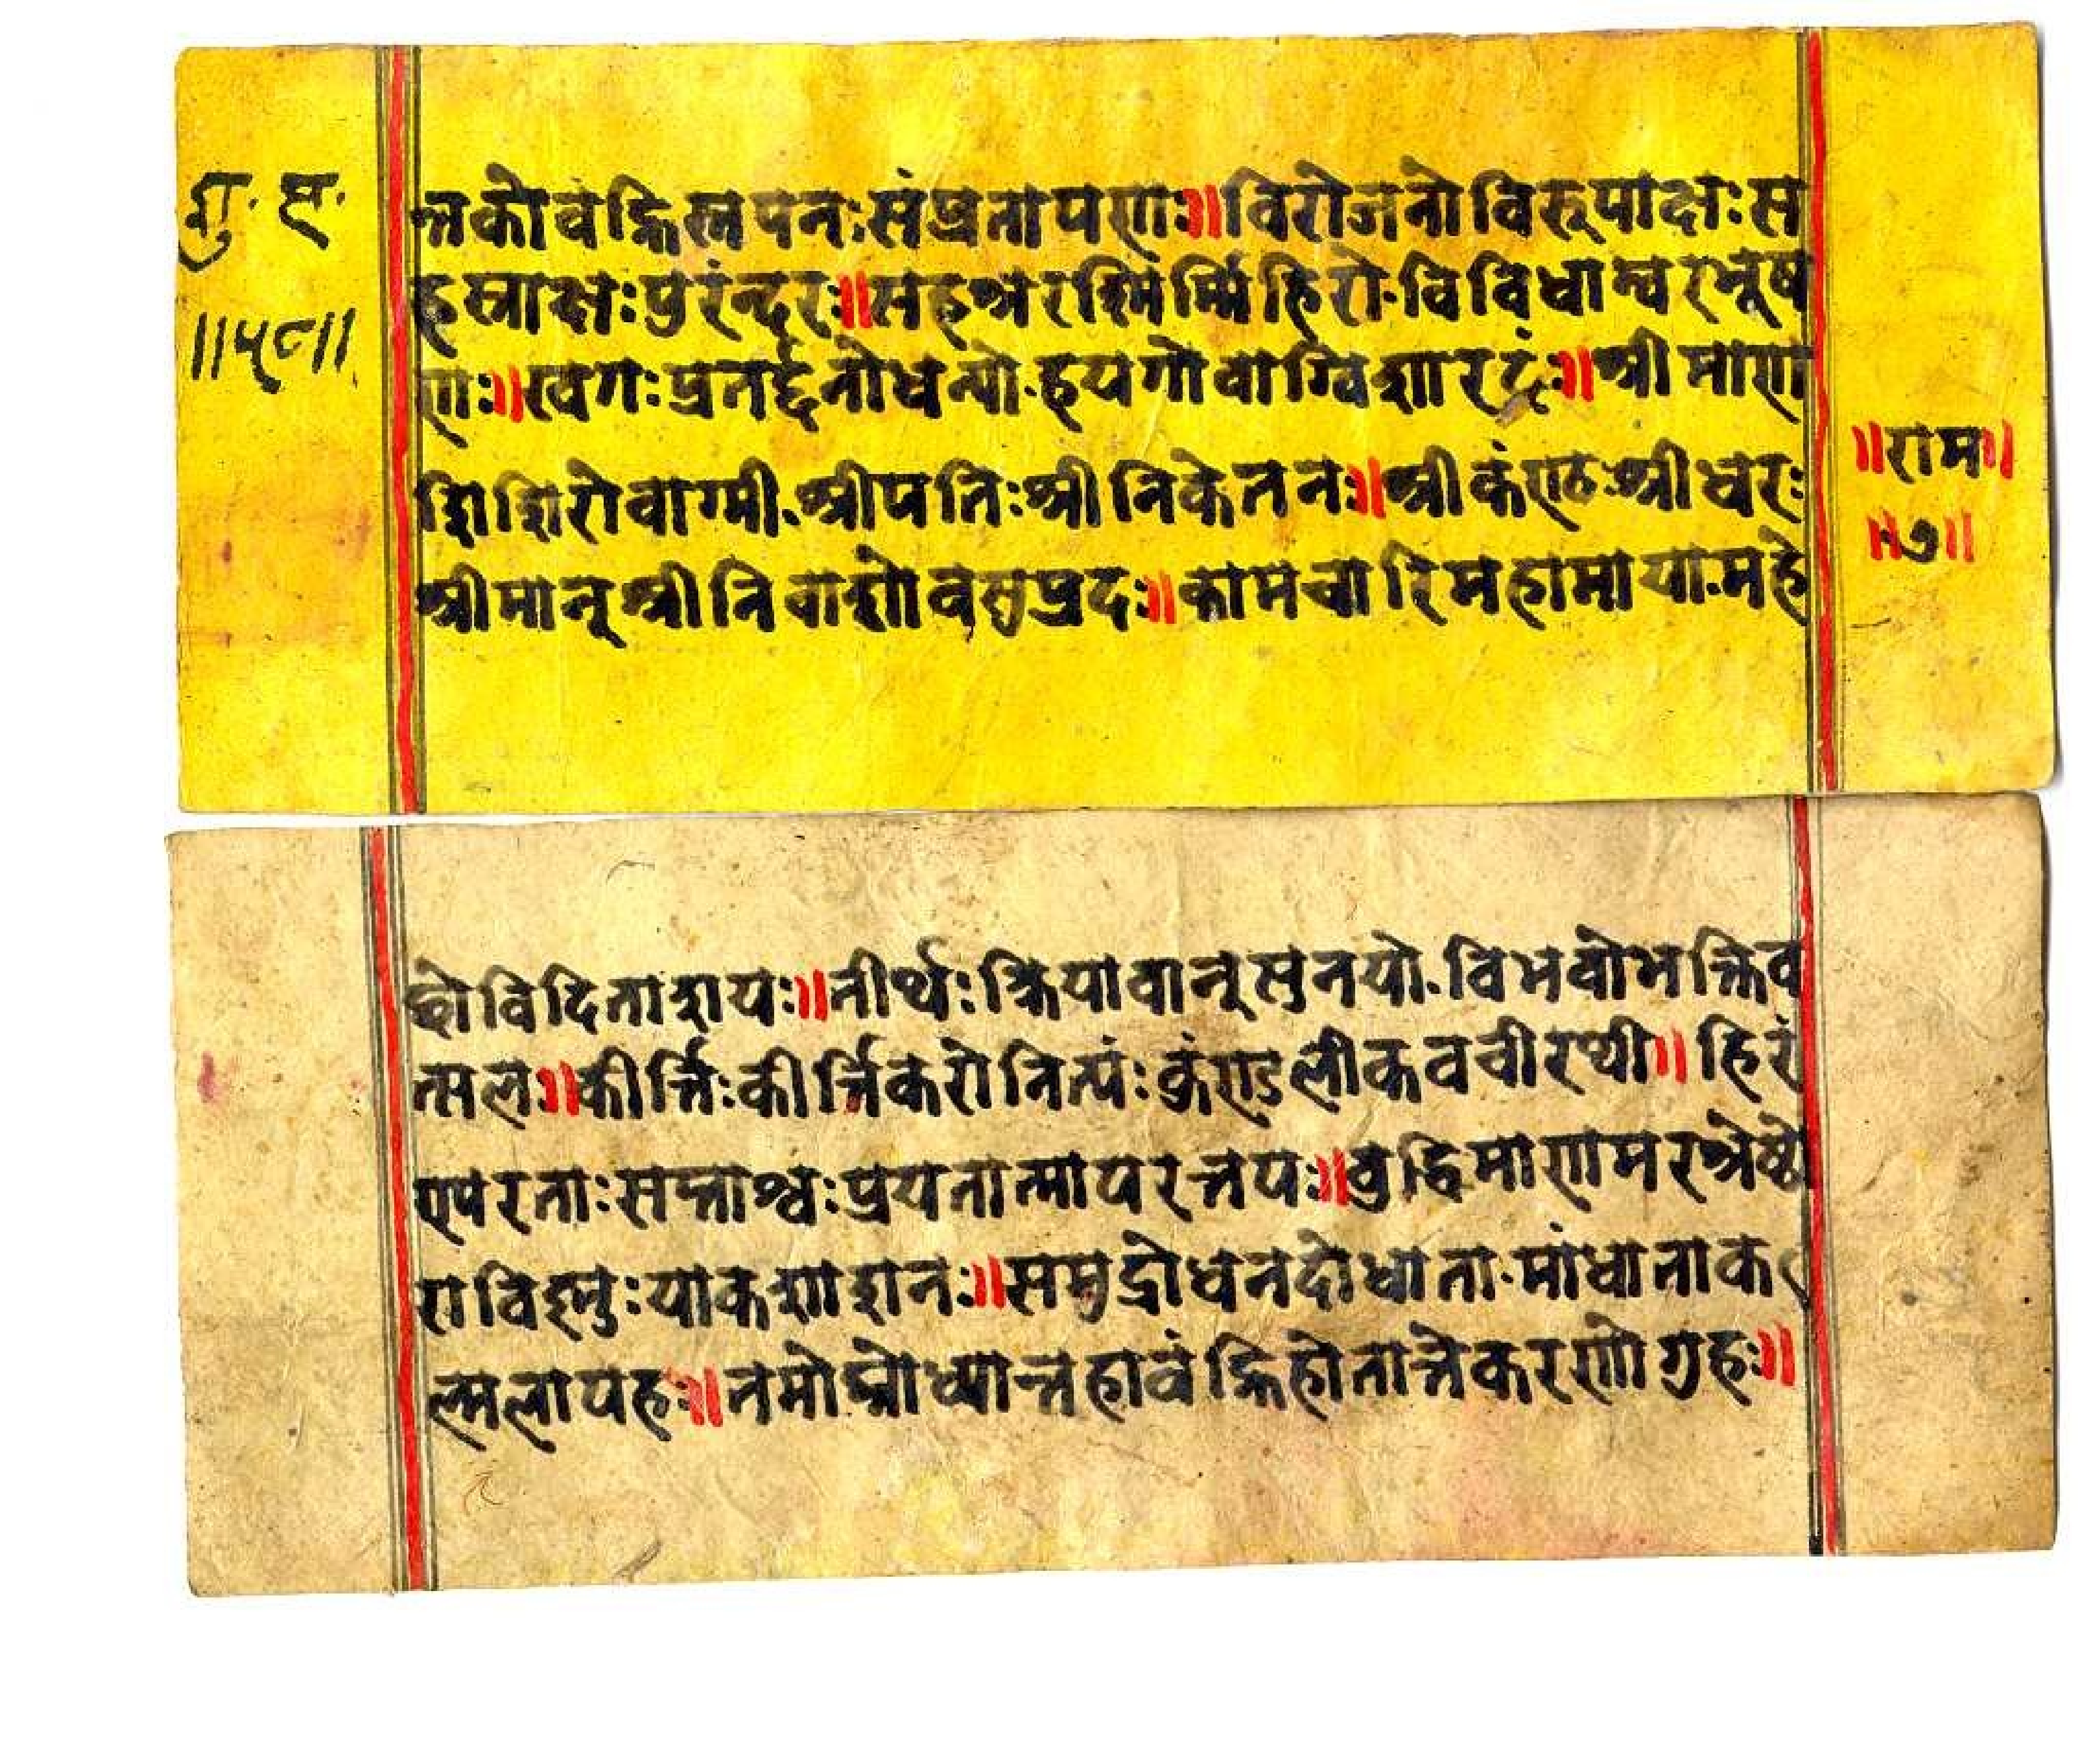 गु. ह.
॥५८॥
न्नकोवंह्निस्नपनःसंप्रतापणः॥विरोजनोविरूपाक्षःस
हस्राक्षःपुरंन्दरः॥सहश्ररश्मिंर्म्मिहिरो.विविधाम्वरभूष
णः॥खगःप्रतर्द्दनोधन्यो.हयगोवाग्विशारदः॥श्रीमाण
शिशिरोवाग्मी.श्रीपतिःश्रीनिकेतनः॥श्रीकंण्ठःश्रीधरः
श्रीमान्श्रीनिवाशोवसुप्रदः॥कामचारिमहामाया.महे
॥राम॥
॥७॥
छोविदिताशयः॥तीर्थःक्रियावान्सुनयो.विभवोभक्तिव
त्मलः॥कीर्त्तिःकीर्त्तिकरोनित्यंःकुंण्डलीकवचीरथी॥हिरं
ण्परताःसप्ताश्वःप्रयतात्मापरन्तपः॥वुद्धिमाणामरश्रेष्ठो
राविझ्नुःयाकशाशनः॥समुद्रोधनदोधाता.मांधाताक
ल्मलापहः॥तमोघ्नोध्यान्तहावंह्निहोतान्तेकरणोगुहः॥